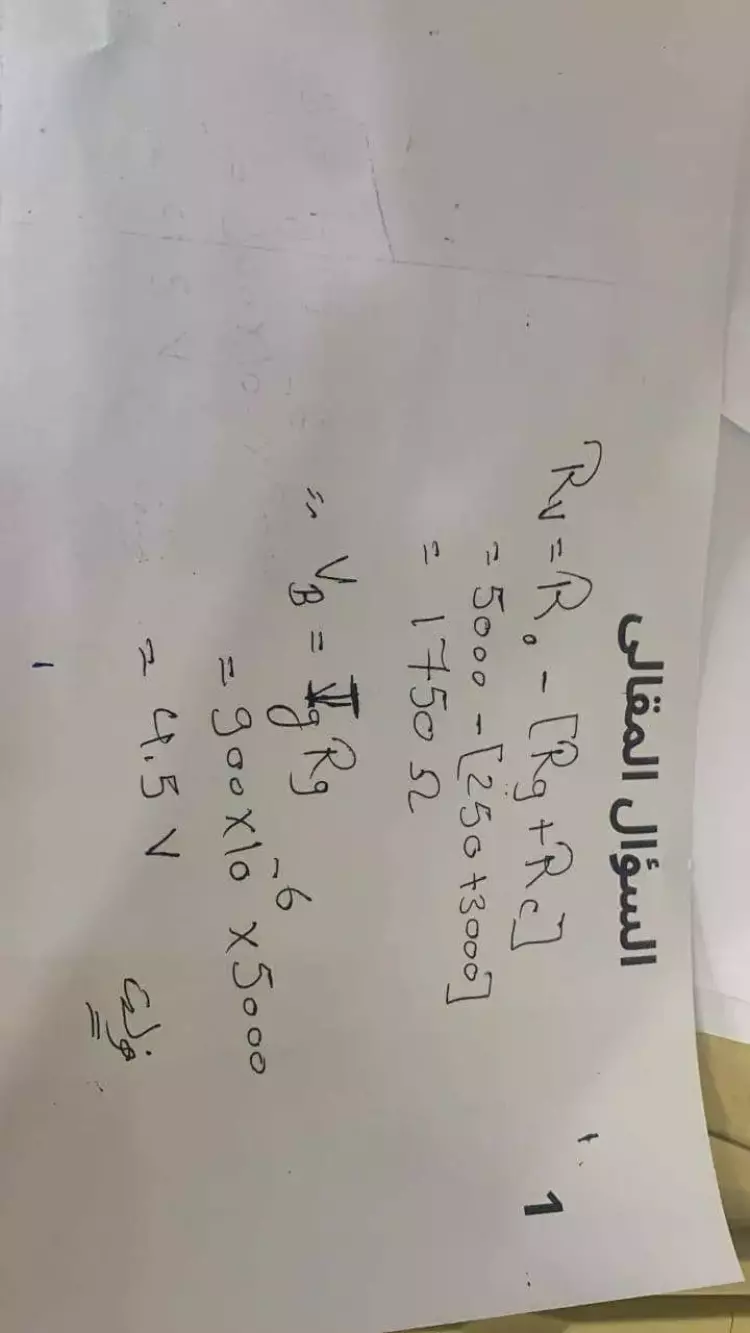 السؤال المقالى
1
Rv = R₀ - [Rg + Rc]
= 5000 - [250 + 3000]
= 1750 Ω
∴ VB = Ig Rg
= 900 x 10⁻⁶ x 5000
= 4.5 V